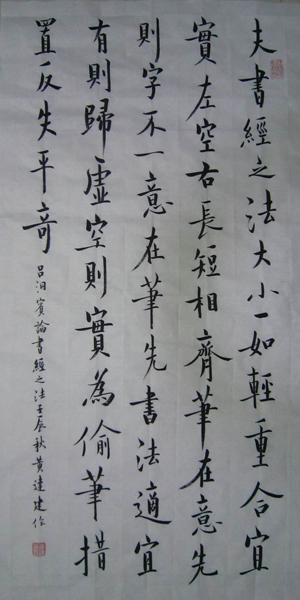 夫書經之法大小一如輕重合宜
實左空右長短相齊筆在意先
則字不一意在筆先書法適宜
有則歸虛空則實為偷筆措
置反失平奇
呂洞賓論書經之法壬辰秋黃達建作